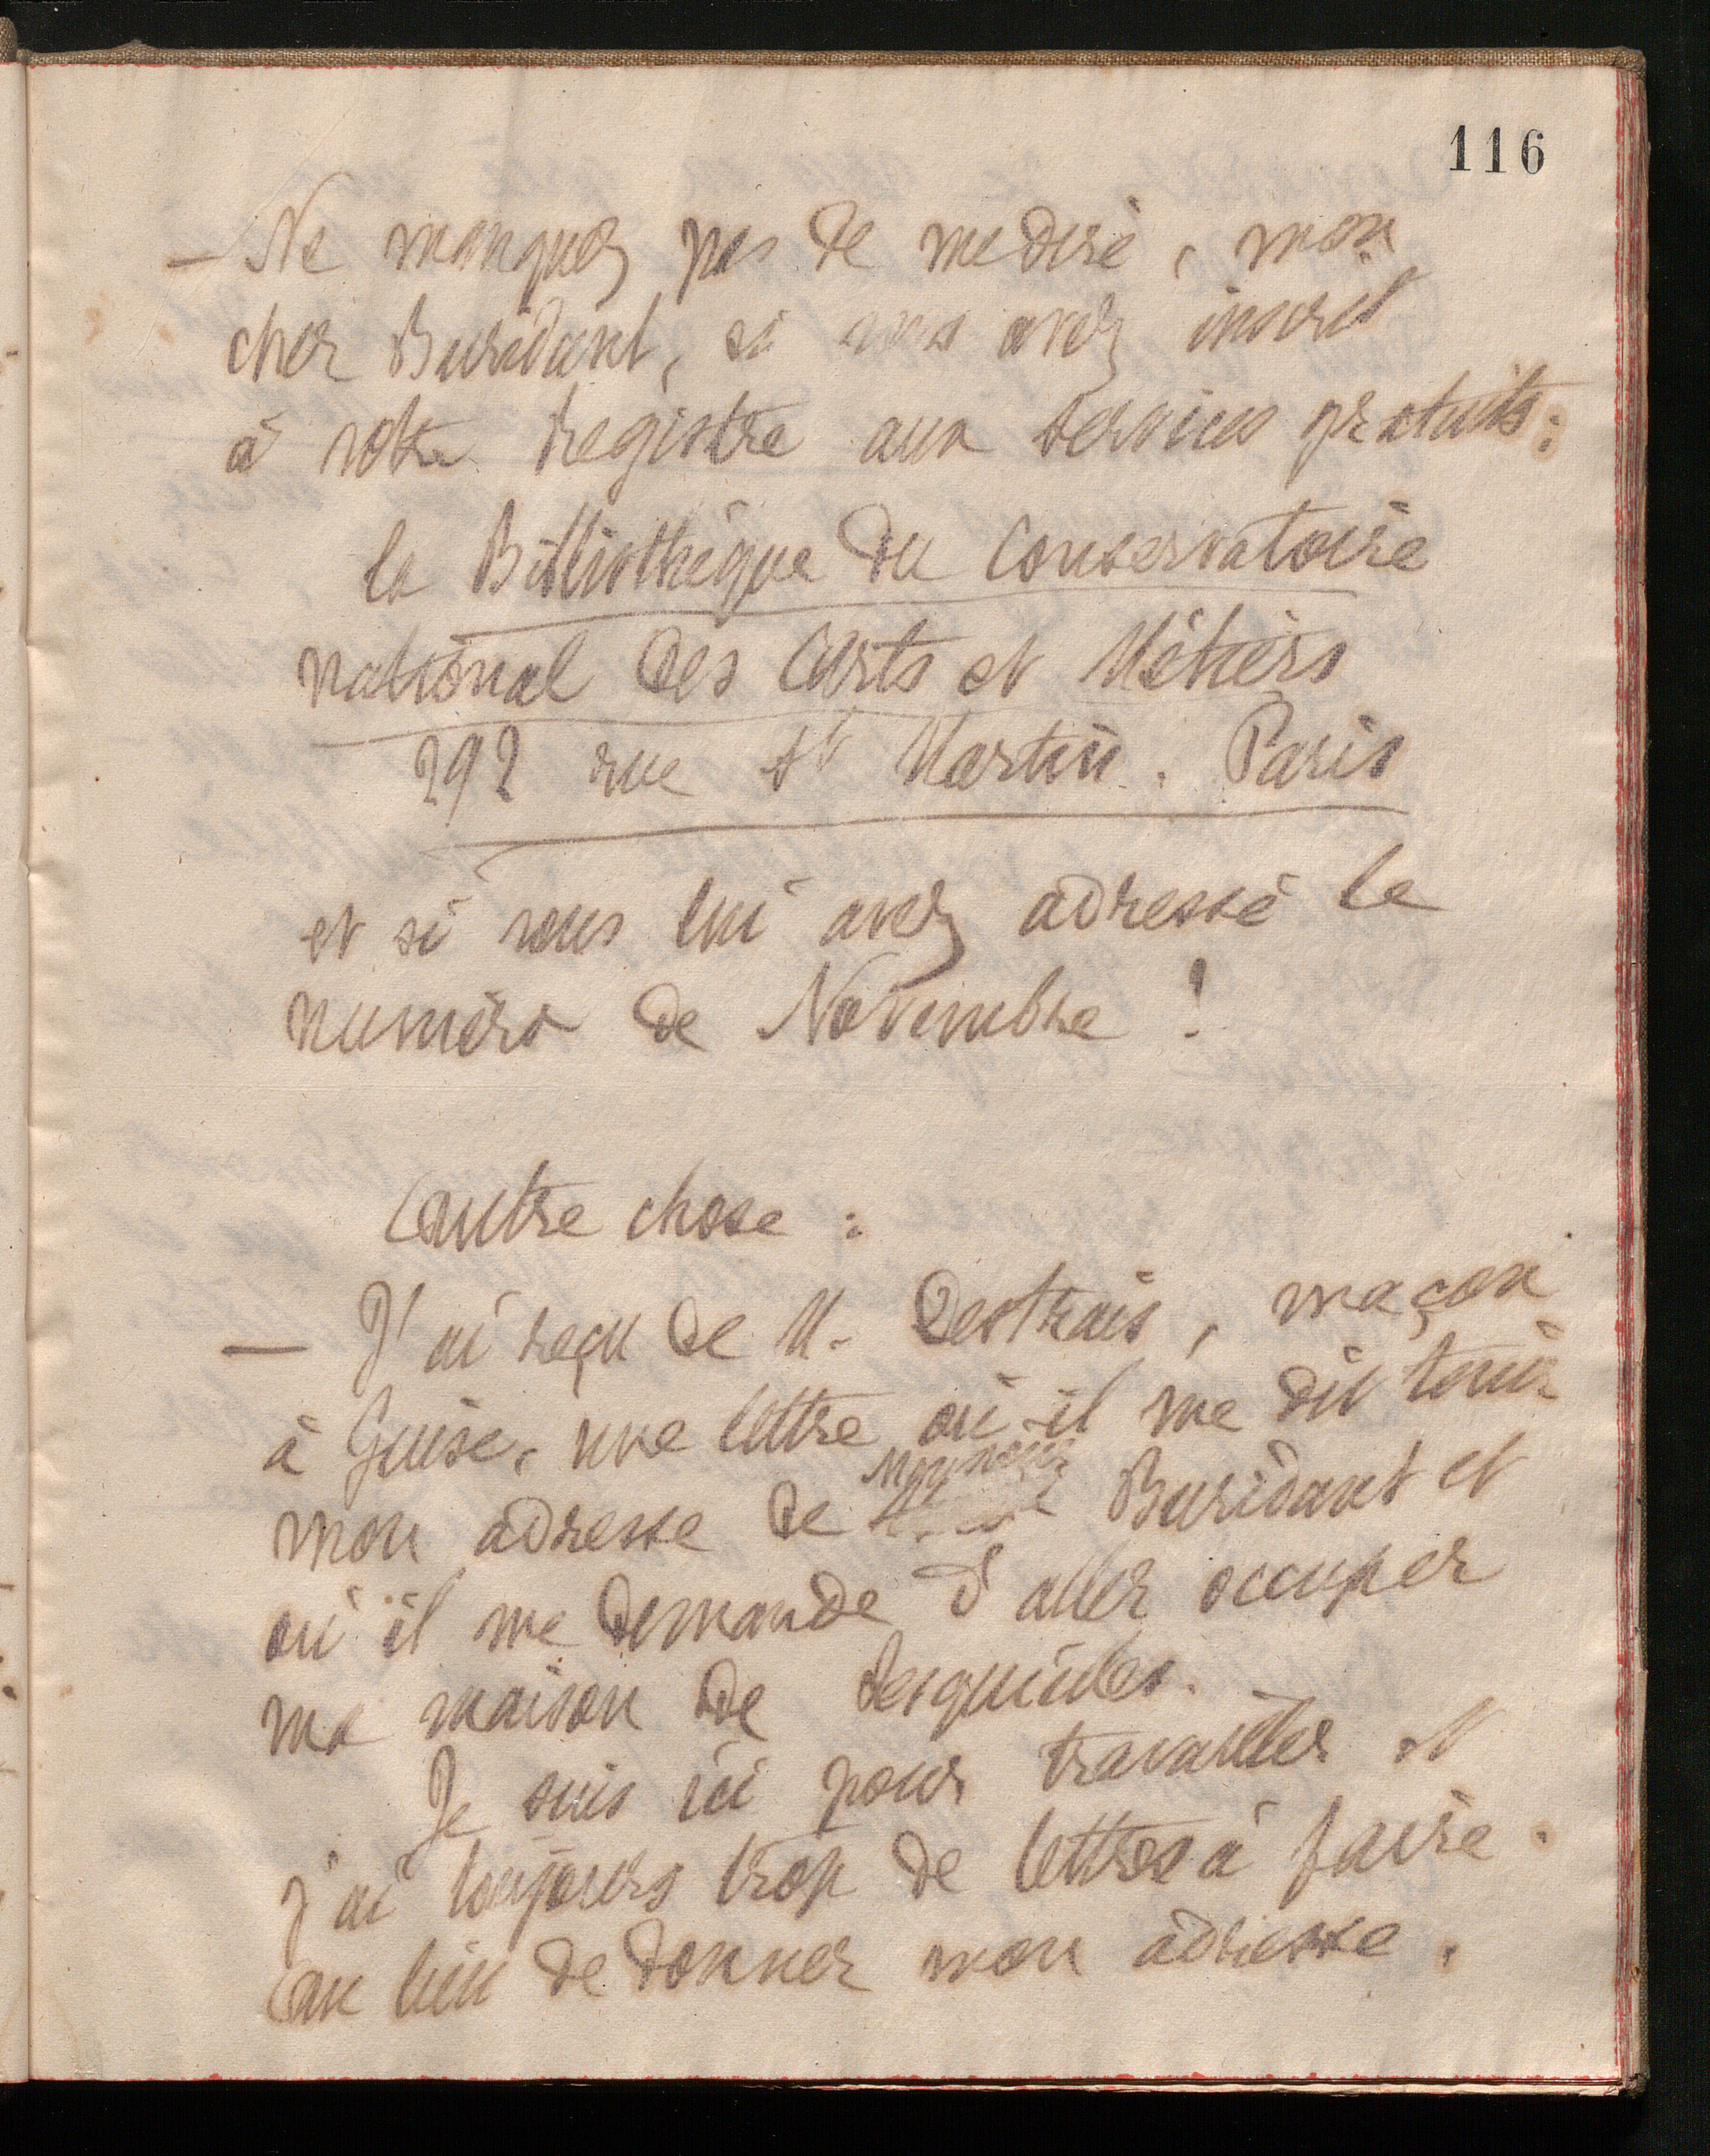 116
— Ne manquez pas de me dire, mon
cher Buridant, si vous avez inscrit
à votre registre aux services gratuits :
la Bibliothèque du Conservatoire
national des Arts et Métiers
292 rue St Martin. Paris
et si vous lui avez adressé le
numéro de Novembre !
Autre chose :
— J'ai reçu de M. Destrais, maçon
à Guise, une lettre où il me dit tenir
Monsieur
mon adresse de Buridant et
où il me demande d'aller occuper
ma maison de Lesquielles.
Je suis ici pour travailler et
j'ai toujours trop de lettres à faire.
Au lieu de donner mon adresse,